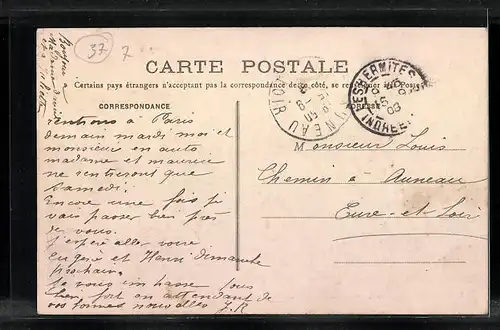 37 7
Bonjour à
Madame
et à Juliette
CARTE POSTALE
Certains pays étrangers n'acceptent pas la correspondance de ce côté, se renseigner à la Poste
CORRESPONDANCE
ADRESSE
LES HERMITES
INDRE-ET
AUNEAU
rentrons à Paris
demain mardi moi et
monsieur en auto
madame et maurice
ne rentrerons que
Samedi.
Encore une fois je
vais passer bien près
de vous.
J'espère aller voire
Eugène et Henri dimanche
prochain.
Je vous embrasse tous
bien fort en attendant de
vos bonnes nouvelles J.R
M onsieur Louis
Chemin à Auneau
Eure-et-Loir